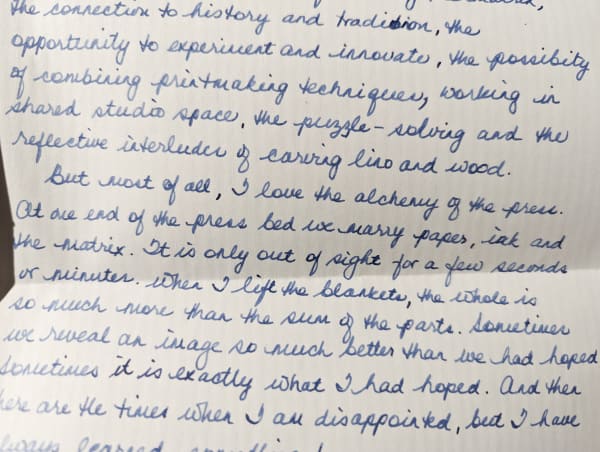 the connection to history and tradition, the
opportunity to experiment and innovate, the possibity
of combining printmaking techniques, working in
shared studio space, the puzzle-solving and the
reflective interludes of carving lino and wood.
But most of all, I love the alchemy of the press.
At one end of the press bed we marry paper, ink and
the matrix. It is only out of sight for a few seconds
or minutes. When I lift the blankets, the whole is
so much more than the sum of the parts. Sometimes
we reveal an image so much better than we had hoped
Sometimes it is exactly what I had hoped. And then
here are the times when I am disappointed, but I have
learned